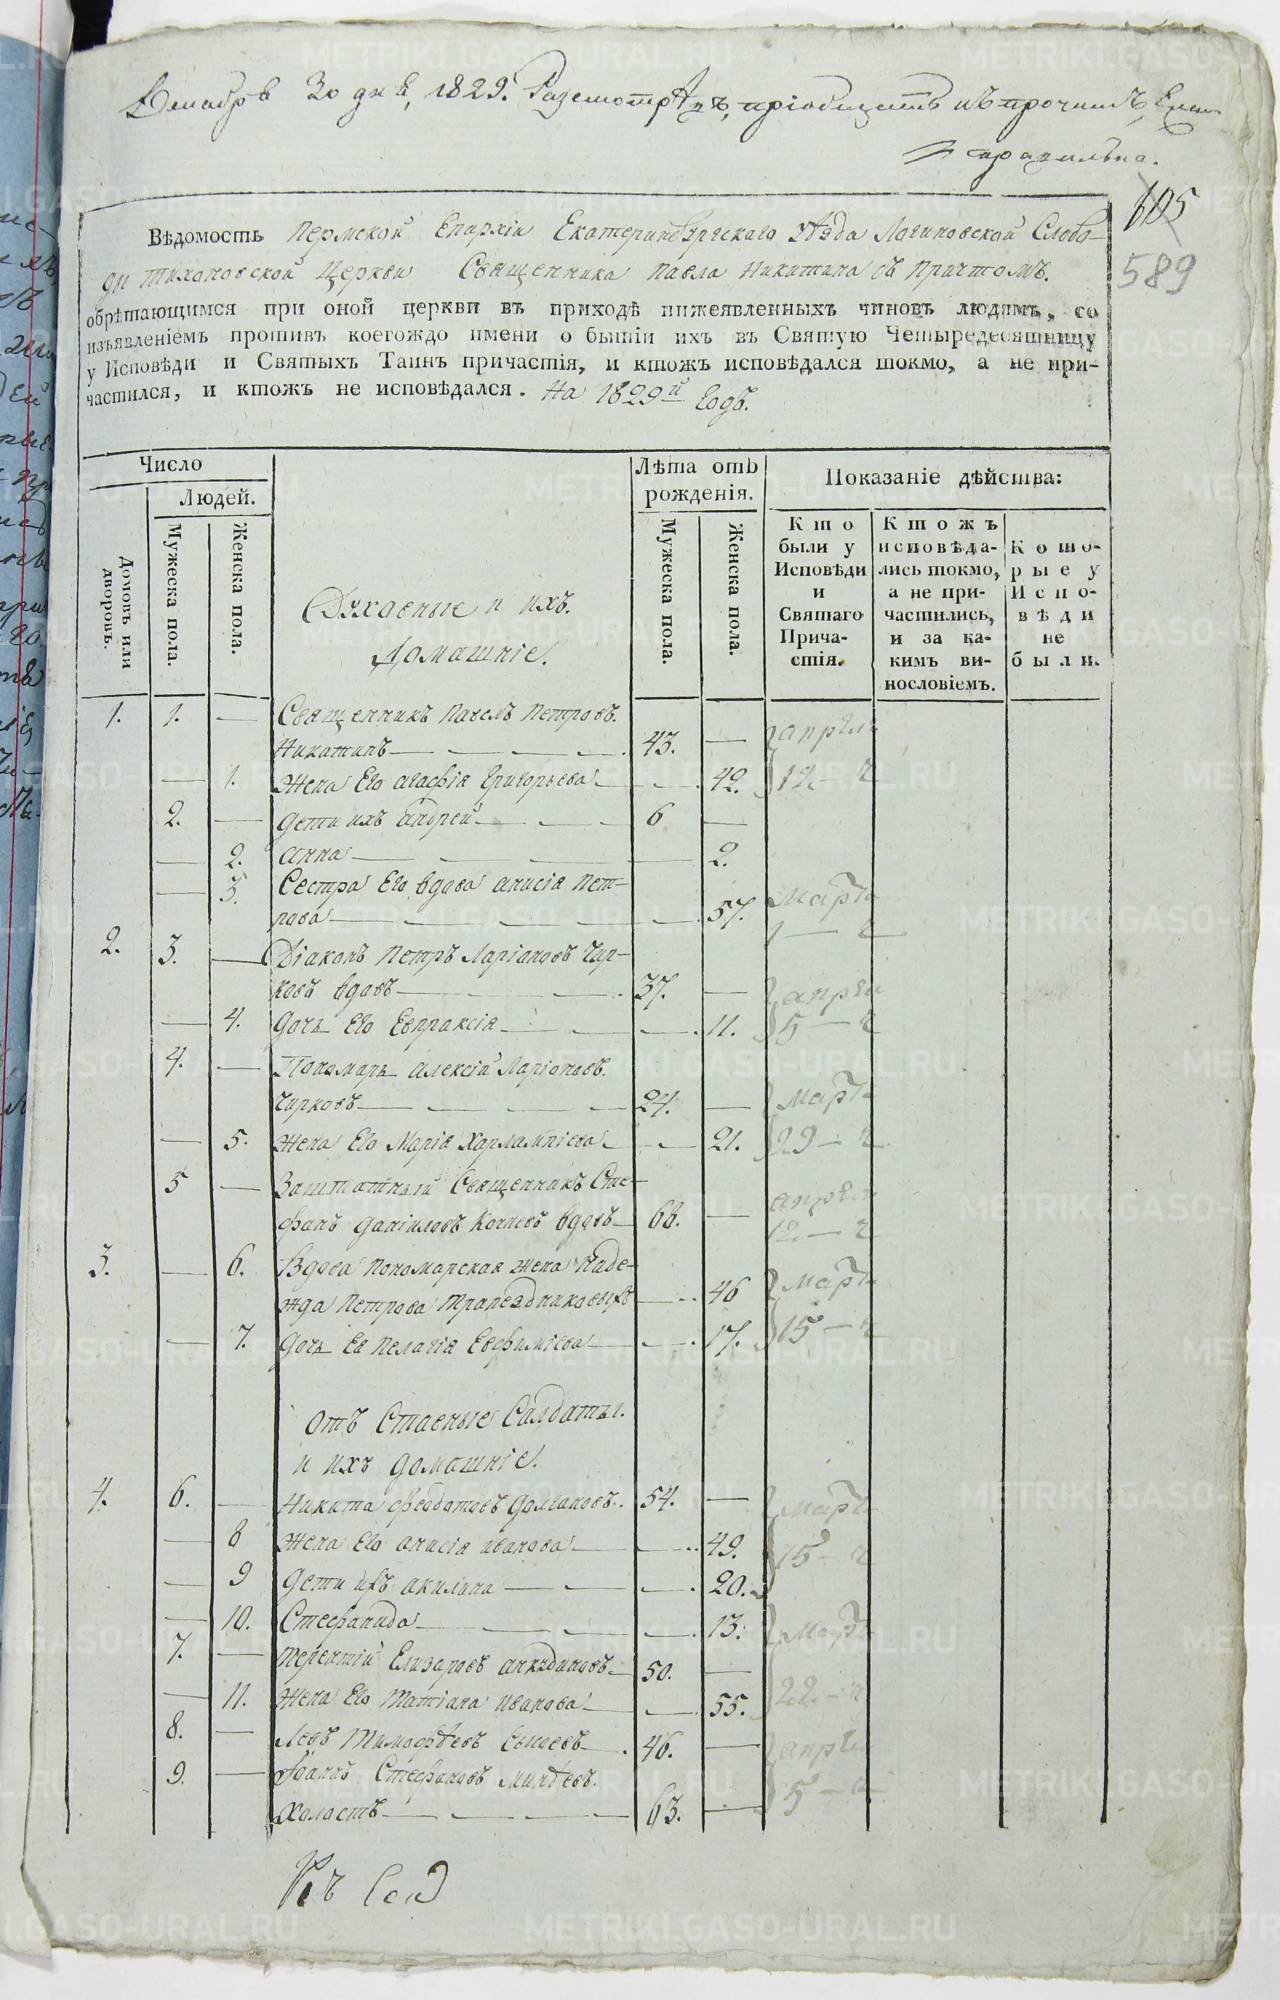 Декабря 30 дня, 1829. Разсмотрѣнъ, пріобщить къ прочимъ,
справильна.
105
589
Вѣдомость Пермской Епархіи Екатеринбургскаго Уѣзда Логиновской Слобо-
ды Тихоновской Церкви Священника Павла Никитина съ Причтомъ.
обрѣтающимся при оной церкви въ приходѣ нижеявленныхъ чиновъ людямъ, со
изъявленіемъ противъ коегождо имени о бытіи ихъ въ Святую Четыредесятницу
у Исповѣди и Святыхъ Таинъ причастія, и ктожъ исповѣдался токмо, а не при-
частился, и ктожъ не исповѣдался. На 1829й Годъ.
Число
Людей.
Домовъ или дворовъ.
Мужеска пола.
Женска пола.
Лѣта отъ рожденія.
Мужеска пола.
Женска пола.
Показаніе дѣйства:
Кто были у Исповѣди и Святаго Прича-стія.
Ктожъ исповѣда-лись токмо, а не при-частились, и за ка-кимъ ви-нословіемъ.
Кото-рые у Испо-вѣди не были.
Духовные и ихъ
Домашніе.
1. 1. — Священникъ Павелъ Петровъ
Никитинъ — 43. — апрѣля
— 1. Жена Его Агафія Григорьева — 42. 12 — ч
2. — Дети ихъ Андрей — 6 —
— 2. Анна — 2.
— 3. Сестра Его вдова Анисія Пет-
рова — 57. Марта 1 — ч
2. 3. — Діаконъ Петръ Ларіоновъ Чир-
ковъ вдовъ — 37. — апрѣля
— 4. Дочь Его Евпраксія — 11. 5 — ч
4. — Пономарь Алексій Ларіоновъ
Чирковъ — 24. — Марта
— 5. Жена Его Марія Харлампіева — 21. 29 — ч
5 — Заштатный Священникъ Сте-
фанъ Даніиловъ вдовъ — 68. — апрѣля 12 — ч
3. — 6. Вдова Пономарская жена Наде-
жда Петрова Трапезниковыхъ — 46 Марта
— 7. Дочь Ея Пелагія Евфиміева — 17. 15 — ч
Отъ Ставные Салдаты
и ихъ домашніе.
4. 6. — Никита Феодотовъ Долгановъ 54. — Марта
— 8 Жена Его Анисія Иванова — 49. 15 — ч
— 9 Дети ихъ Акилина — 20.
— 10. Стефанида — 13. Марта
7. — Терентій Елизаровъ Анкудиновъ 50. —
— 11. Жена Его Татіана Иванова — 55. 22 — ч
8. — Левъ Тимофѣевъ Сысоевъ 46. — апрѣля
9. — Іоаннъ Стефановъ
Холостъ — 63. — 5 — ч
Къ Сей
METRIKI.GASO-URAL.RU